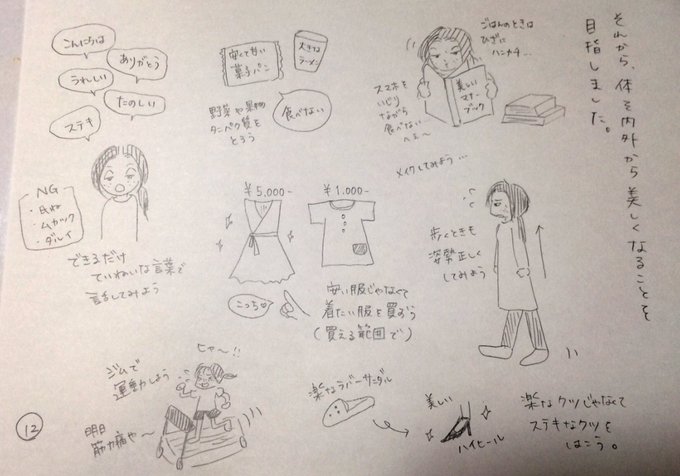 それから、体を内外から美しくなることを
目指しました。
こんにちは
ありがとう
うれしい
たのしい
ステキ
NG
・死ね
・ムカツク
・ダルイ
できるだけ
ていねいな言葉で
話してみよう
安くて甘い
菓子パン
大きな
ラーメン
野菜や果物
タンパク質を
とろう
食べない
ごはんのときは
ひざに
ハンカチ…
美しい
マナー
ブック
スマホを
いじり
ながら
食べない
へぇ〜
メイクしてみよう…
¥5,000-
¥1,000-
こっち♡
安い服じゃなくて
着たい服を買おう
(買える範囲で)
歩くときも
姿勢正しく
してみよう
ジムで
運動しよう
ヒャ〜!!
明日
筋肉痛や〜
楽なラバーサンダル
美しい
ハイヒール
楽なクツじゃなくて
ステキなクツを
はこう。
12